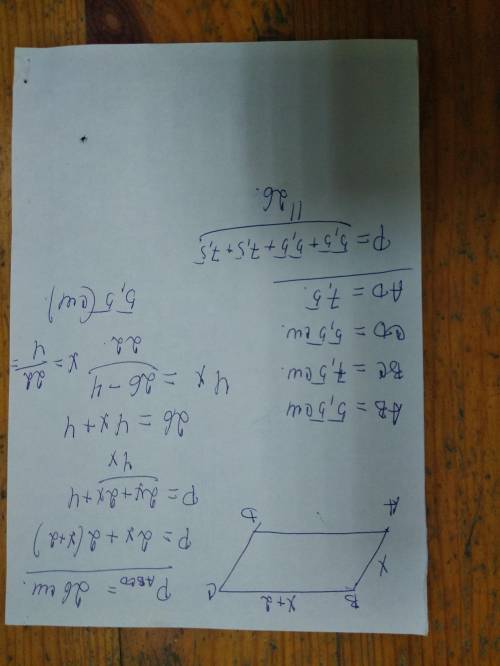 B
x+2
C
x
A
D
P ABCD = 26 см.
P = 2x + 2(x+2)
P = 2x + 2x + 4
4x
26 = 4x + 4
4x = 26 - 4
22
x = 22/4 =
5,5 (см)
AB = 5,5 см
BC = 7,5 см.
CD = 5,5 см.
AD = 7,5.
P = 5,5 + 5,5 + 7,5 + 7,5
||
26.